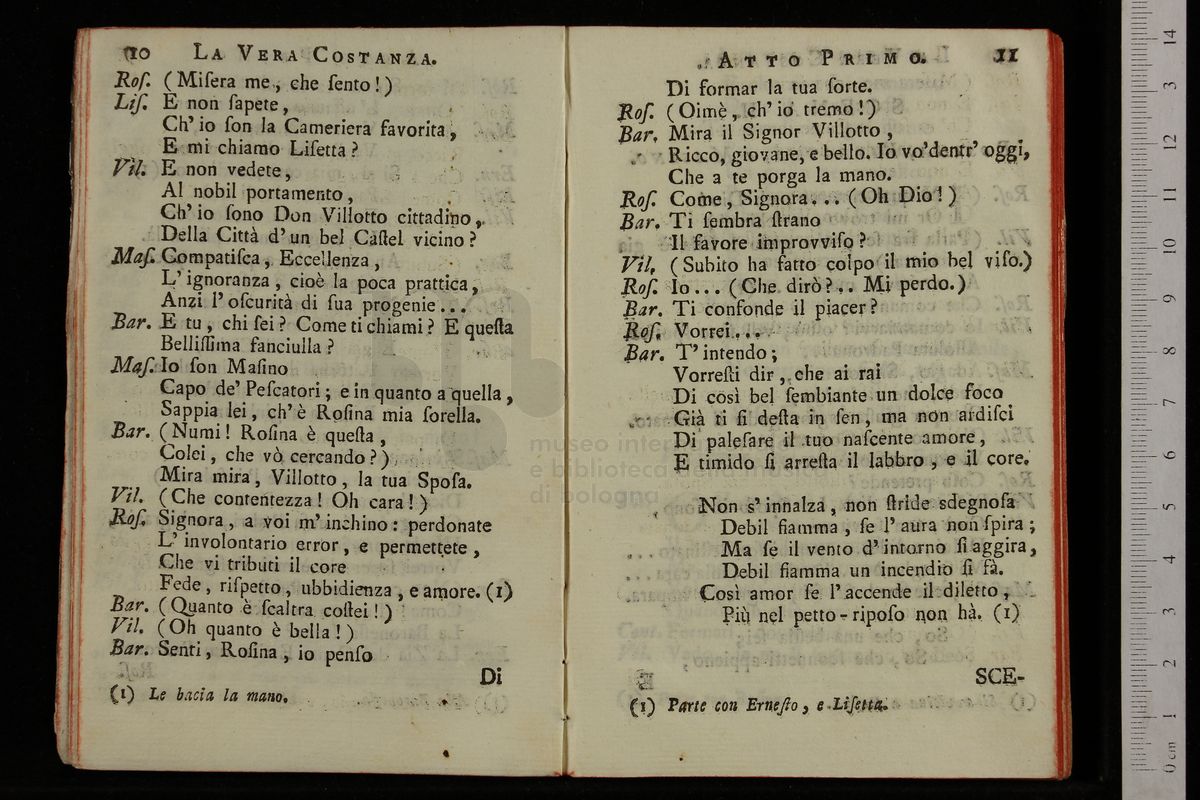 10 LA VERA COSTANZA.
Roſ. (Miſera me, che ſento!)
Liſ. E non ſapete,
Ch' io ſon la Cameriera favorita,
E mi chiamo Liſetta?
Vil. E non vedete,
Al nobil portamento,
Ch' io ſono Don Villotto cittadino,
Della Città d' un bel Caſtel vicino?
Maſ. Compatiſca, Eccellenza,
L' ignoranza, cioè la poca prattica,
Anzi l' oſcurità di ſua progenie...
Bar. E tu, chi ſei? Come ti chiami? E queſta
Belliſſima fanciulla?
Maſ. Io ſon Maſino
Capo de' Peſcatori; e in quanto a quella,
Sappia lei, ch' è Roſina mia ſorella.
Bar. (Numi! Roſina è queſta,
Colei, che vò cercando?)
Mira mira, Villotto, la tua Spoſa.
Vil. (Che contentezza! Oh cara!)
Roſ. Signora, a voi m' inchino: perdonate
L' involontario error, e permettete,
Che vi tributi il core
Fede, riſpetto, ubbidienza, e amore. (1)
Bar. (Quanto è ſcaltra coſtei!)
Vil. (Oh quanto è bella!)
Bar. Senti, Roſina, io penſo
Di
(1) Le bacia la mano.
ATTO PRIMO. 11
Di formar la tua ſorte.
Roſ. (Oimè, ch' io tremo!)
Bar. Mira il Signor Villotto,
Ricco, giovane, e bello. Io vo' dentr' oggi,
Che a te porga la mano.
Roſ. Come, Signora... (Oh Dio!)
Bar. Ti ſembra ſtrano
Il favore improvviſo?
Vil. (Subito ha fatto colpo il mio bel viſo.)
Roſ. Io... (Che dirò?.. Mi perdo.)
Bar. Ti confonde il piacer?
Roſ. Vorrei...
Bar. T' intendo;
Vorreſti dir, che ai rai
Di così bel ſembiante un dolce foco
Già ti ſi deſta in ſen, ma non ardiſci
Di paleſare il tuo naſcente amore,
E timido ſi arreſta il labbro, e il core.
Non s' innalza, non ſtride sdegnoſa
Debil fiamma, ſe l' aura non ſpira;
Ma ſe il vento d' intorno ſi aggira,
Debil fiamma un incendio ſi fà.
Così amor ſe l' accende il diletto,
Più nel petto-ripoſo non hà. (1)
SCE-
(1) Parte con Erneſto, e Liſetta.
museo
e biblioteca della musica
di bologna